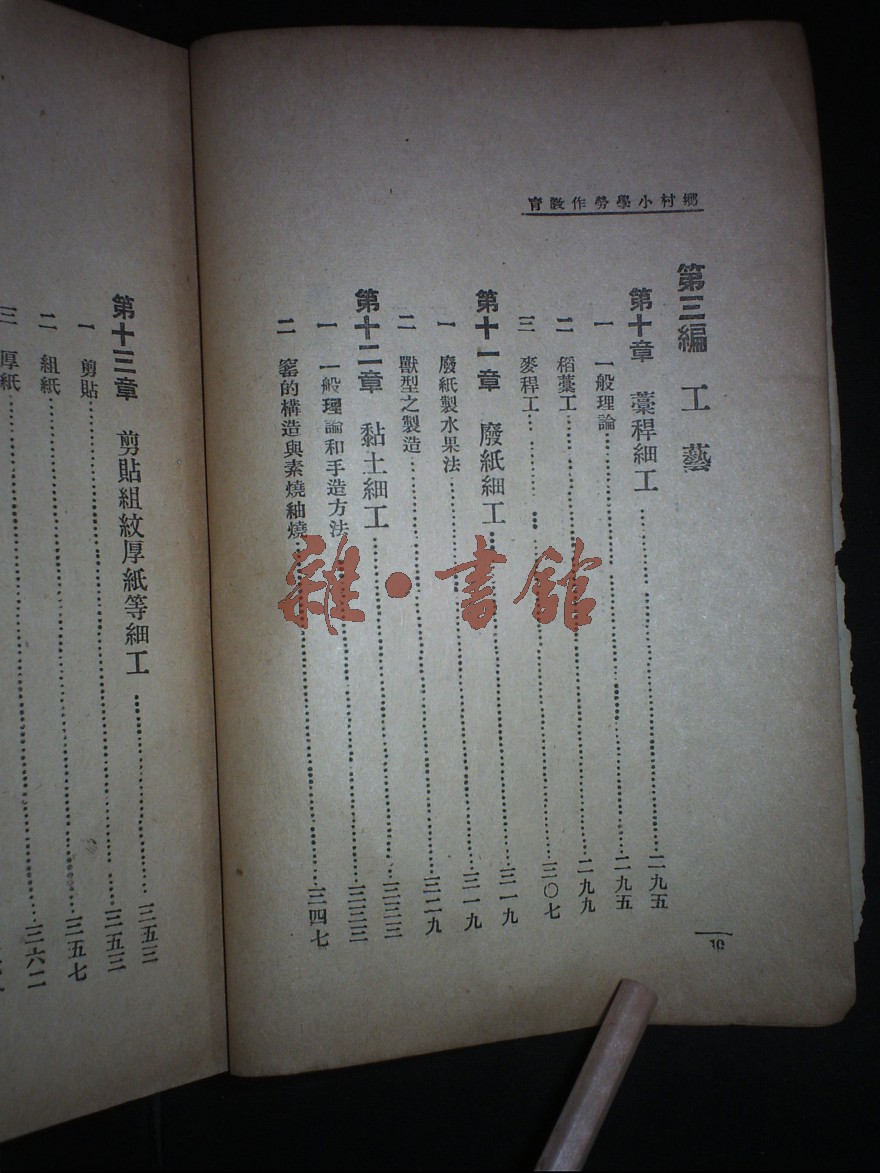 鄉村小學勞作教育
第三編 工藝
第十章 藁稈細工……二九五
一 一般理論……二九五
二 稻藁工……二九九
三 麥稈工……三〇七
第十一章 廢紙細工……三一九
一 廢紙製水果法……三一九
二 獸型之製造……三二九
第十二章 黏土細工……三三三
一 一般理論和手造方法……三三三
二 窰的構造與素燒釉燒……三四七
10
第十三章 剪貼組紋厚紙等細工……三五三
一 剪貼……三五三
二 組紙……三五七
三 厚紙……三六二
雜·書館